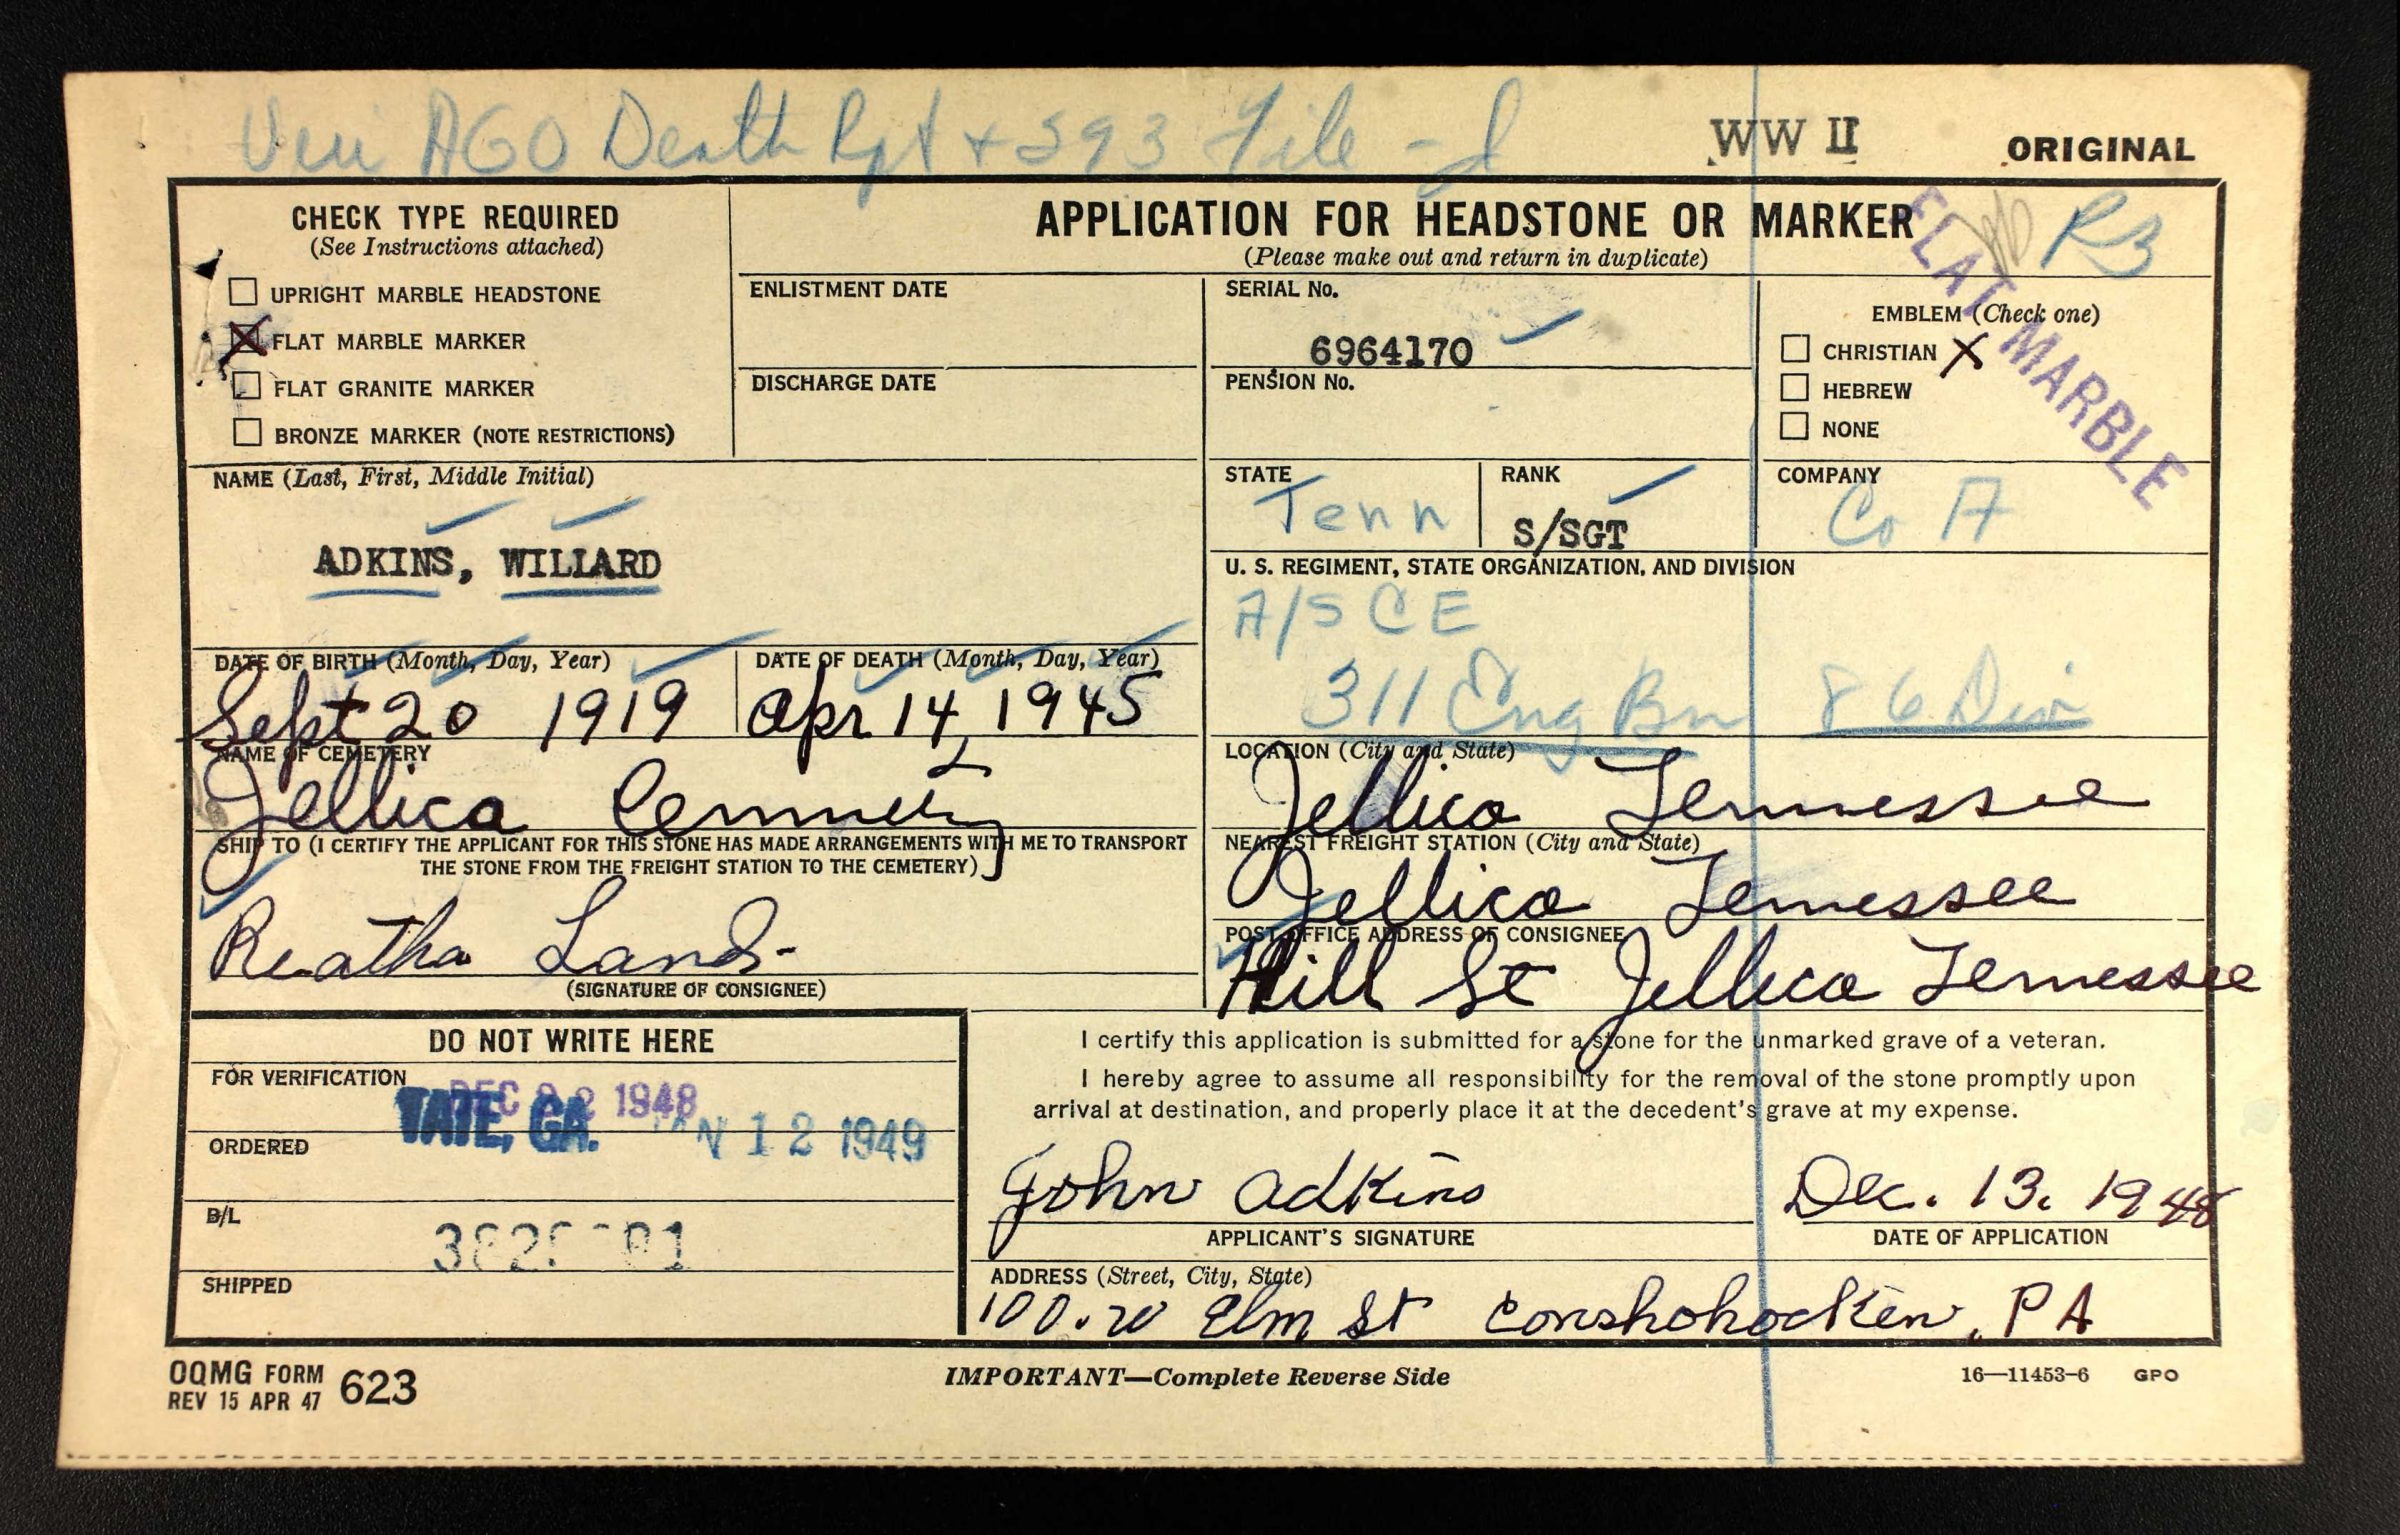 Veri AGO Death Rpt + 293 File - J
WW II
ORIGINAL
CHECK TYPE REQUIRED
(See Instructions attached)
UPRIGHT MARBLE HEADSTONE
X FLAT MARBLE MARKER
FLAT GRANITE MARKER
BRONZE MARKER (NOTE RESTRICTIONS)
APPLICATION FOR HEADSTONE OR MARKER
(Please make out and return in duplicate)
RB
FLAT MARBLE
ENLISTMENT DATE
DISCHARGE DATE
SERIAL No.
6964170
PENSION No.
EMBLEM (Check one)
CHRISTIAN X
HEBREW
NONE
NAME (Last, First, Middle Initial)
ADKINS, WILLARD
STATE
Tenn
RANK
S/SGT
COMPANY
Co A
U. S. REGIMENT, STATE ORGANIZATION, AND DIVISION
A/S CE
311 Eng Bn 86 Div
DATE OF BIRTH (Month, Day, Year)
Sept 20 1919
DATE OF DEATH (Month, Day, Year)
Apr 14, 1945
NAME OF CEMETERY
Jellico
LOCATION (City and State)
Jellico Tennessee
SHIP TO (I CERTIFY THE APPLICANT FOR THIS STONE HAS MADE ARRANGEMENTS WITH ME TO TRANSPORT
THE STONE FROM THE FREIGHT STATION TO THE CEMETERY)
Reatha Land
(SIGNATURE OF CONSIGNEE)
NEAREST FREIGHT STATION (City and State)
Jellico Tennessee
POST OFFICE ADDRESS OF CONSIGNEE
Hill St Jellico Tennessee
DO NOT WRITE HERE
FOR VERIFICATION
DEC 22 1948
TATE, GA.
ORDERED
JAN 12 1949
B/L
SHIPPED
I certify this application is submitted for a stone for the unmarked grave of a veteran.
I hereby agree to assume all responsibility for the removal of the stone promptly upon
arrival at destination, and properly place it at the decedent's grave at my expense.
John Adkins
APPLICANT'S SIGNATURE
Dec. 13, 1948
DATE OF APPLICATION
ADDRESS (Street, City, State)
100. W Elm St Conshohocken, PA
OQMG FORM 623
REV 15 APR 47
IMPORTANT—Complete Reverse Side
16—11453-6 GPO